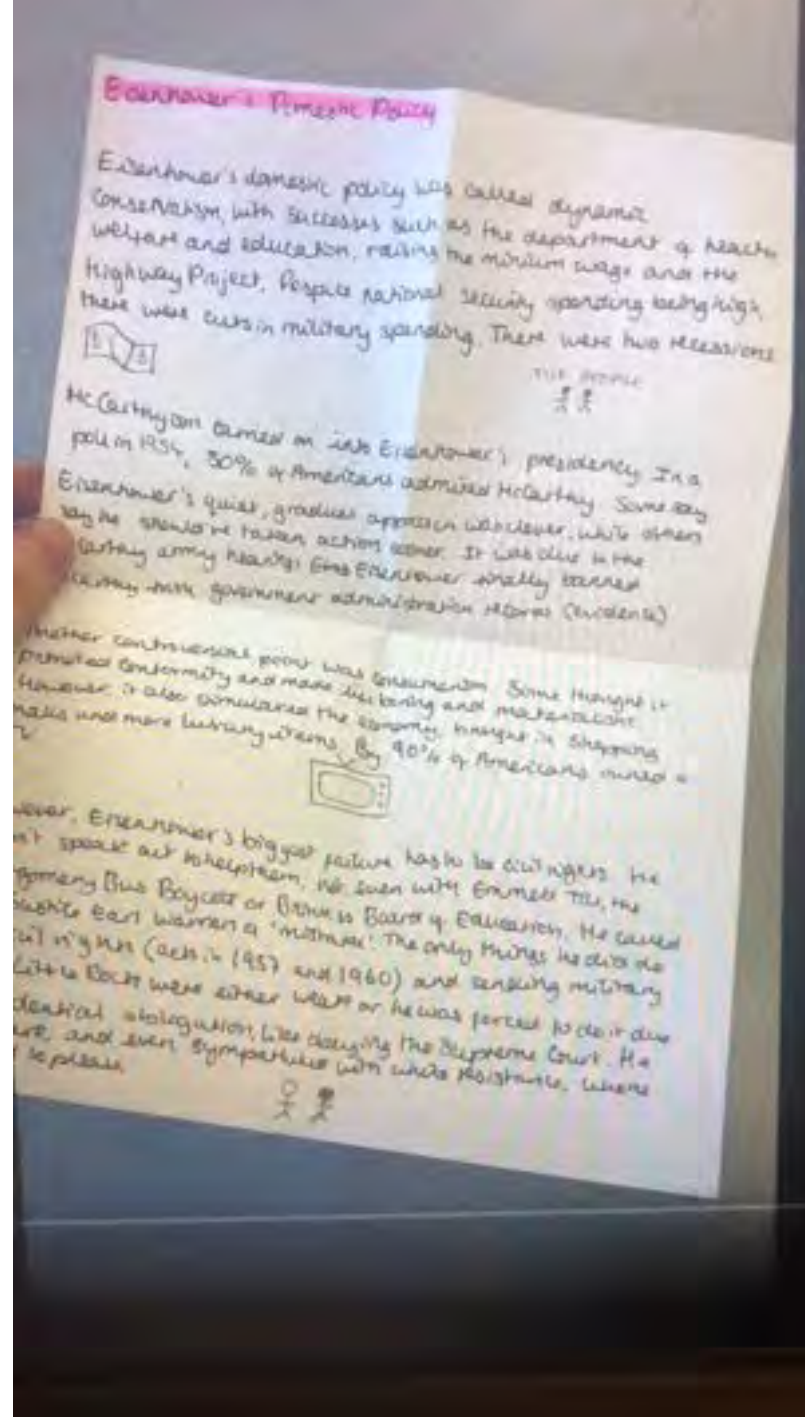 Eisenhower's Domestic Policy
Eisenhower's domestic policy was called dynamic
conservatism, with successes such as the department of health
welfare and education, raising the minium wage and the
Highway Project. Despite national security spending being high,
there were cuts in military spending. There were two recessions
McCarthyism carried on into Eisenhower's presidency. In a
poll in 1954, 50% of Americans admired McCarthy. Some say
Eisenhower's quiet, gradual approach was clever, while others
say he should've taken action sooner. It was due to the
army hearings Eisenhower finally banned
with government administration records (evidence)
controversial point was consumerism. Some thought it
promoted conformity and made life boring and materialistic
However it also stimulated the economy, brought in shopping
malls and more luxury items. By 90% of Americans owned a
Eisenhower's biggest failure has to be civil rights. He
speak out to help them, not even with Emmett Till, the
Bus Boycott or Brown vs Board of Education. He called
Earl Warren a 'mistake'. The only things he did do
rights (acts in 1957 and 1960) and sending military
Little Rock were either weak or he was forced to do it due
obligation, like obeying the Supreme Court. He
and even sympathised with white resistance, where